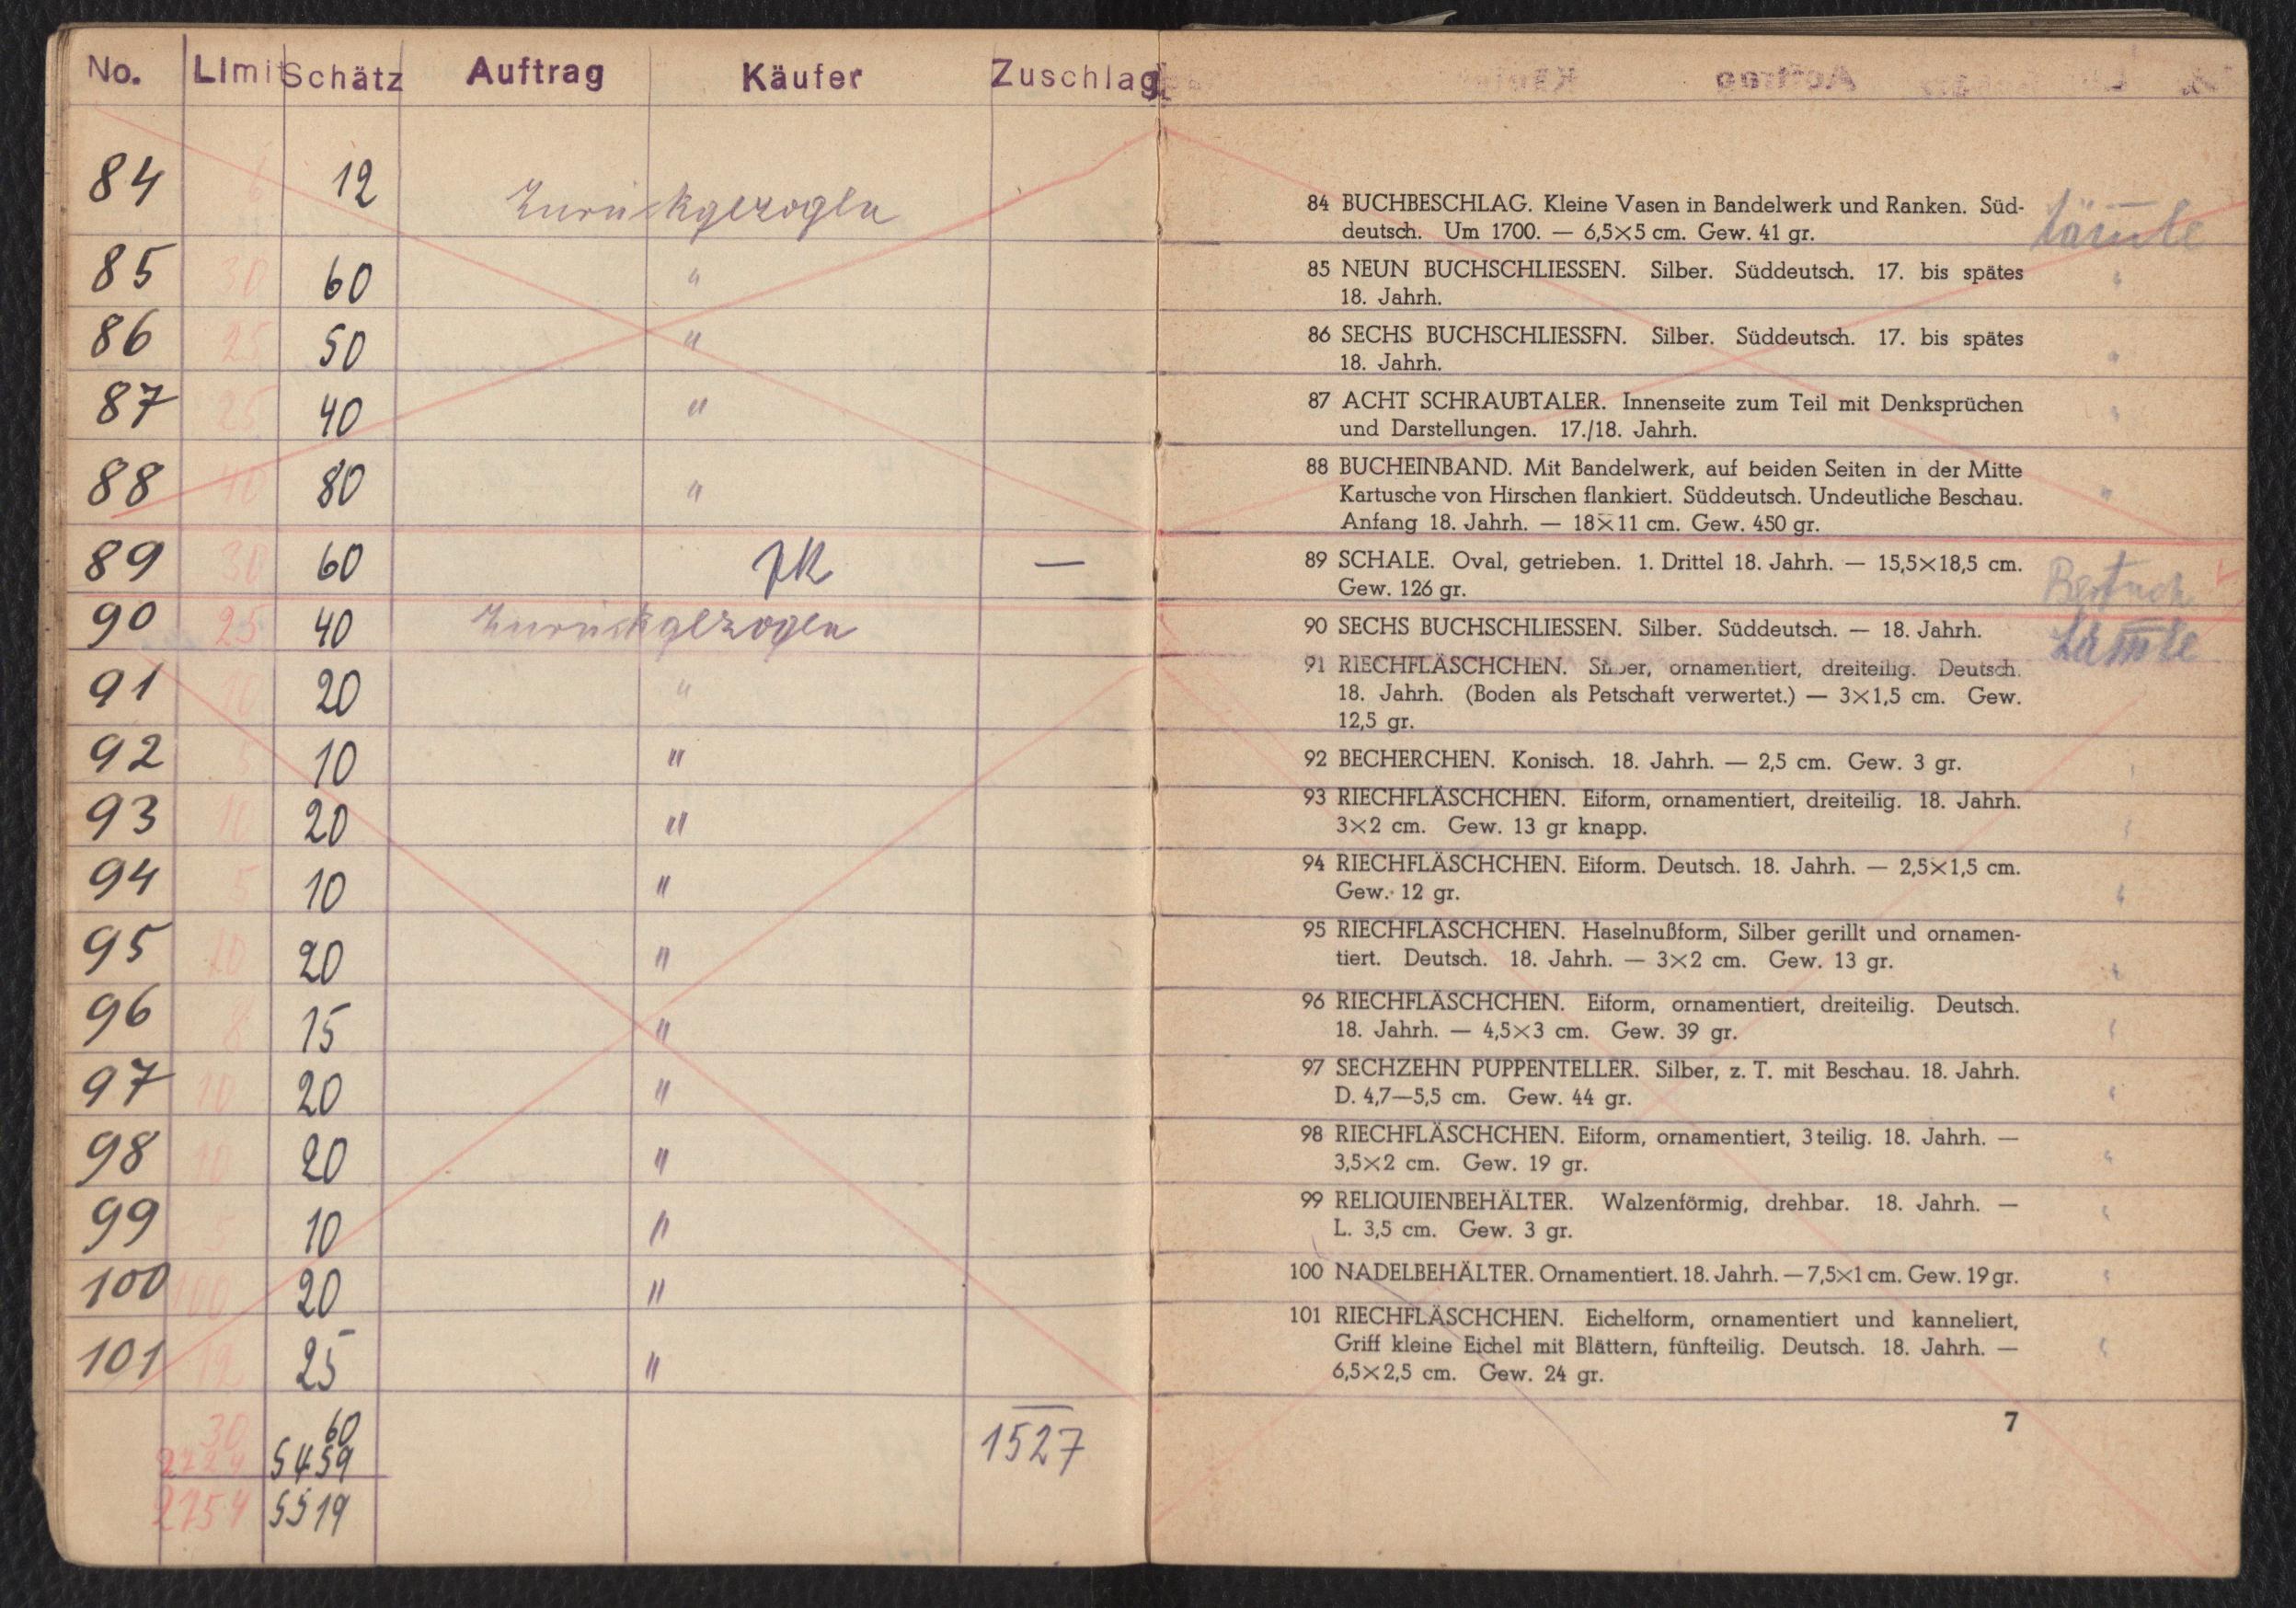 No. Limit Schätz Auftrag Käufer Zuschlag
84 6 12 Zurückgezogen
85 30 60 "
86 25 50 "
87 25 40 "
88 40 80 "
89 30 60 —
90 25 40 Zurückgezogen
91 10 20 "
92 5 10 "
93 10 20 "
94 5 10 "
95 10 20 "
96 8 15 "
97 10 20 "
98 10 20 "
99 5 10 "
100 100 20 "
101 12 25 "
30 60
2724 5459 1527
2754 5519
84 BUCHBESCHLAG. Kleine Vasen in Bandelwerk und Ranken. Süd-
deutsch. Um 1700. — 6,5×5 cm. Gew. 41 gr.
85 NEUN BUCHSCHLIESSEN. Silber. Süddeutsch. 17. bis spätes
18. Jahrh.
86 SECHS BUCHSCHLIESSFN. Silber. Süddeutsch. 17. bis spätes
18. Jahrh.
87 ACHT SCHRAUBTALER. Innenseite zum Teil mit Denksprüchen
und Darstellungen. 17./18. Jahrh.
88 BUCHEINBAND. Mit Bandelwerk, auf beiden Seiten in der Mitte
Kartusche von Hirschen flankiert. Süddeutsch. Undeutliche Beschau.
Anfang 18. Jahrh. — 18×11 cm. Gew. 450 gr.
89 SCHALE. Oval, getrieben. 1. Drittel 18. Jahrh. — 15,5×18,5 cm.
Gew. 126 gr.
90 SECHS BUCHSCHLIESSEN. Silber. Süddeutsch. — 18. Jahrh.
91 RIECHFLÄSCHCHEN. Silber, ornamentiert, dreiteilig. Deutsch.
18. Jahrh. (Boden als Petschaft verwertet.) — 3×1,5 cm. Gew.
12,5 gr.
92 BECHERCHEN. Konisch. 18. Jahrh. — 2,5 cm. Gew. 3 gr.
93 RIECHFLÄSCHCHEN. Eiform, ornamentiert, dreiteilig. 18. Jahrh.
3×2 cm. Gew. 13 gr knapp.
94 RIECHFLÄSCHCHEN. Eiform. Deutsch. 18. Jahrh. — 2,5×1,5 cm.
Gew. 12 gr.
95 RIECHFLÄSCHCHEN. Haselnußform, Silber gerillt und ornamen-
tiert. Deutsch. 18. Jahrh. — 3×2 cm. Gew. 13 gr.
96 RIECHFLÄSCHCHEN. Eiform, ornamentiert, dreiteilig. Deutsch.
18. Jahrh. — 4,5×3 cm. Gew. 39 gr.
97 SECHZEHN PUPPENTELLER. Silber, z. T. mit Beschau. 18. Jahrh.
D. 4,7—5,5 cm. Gew. 44 gr.
98 RIECHFLÄSCHCHEN. Eiform, ornamentiert, 3teilig. 18. Jahrh. —
3,5×2 cm. Gew. 19 gr.
99 RELIQUIENBEHÄLTER. Walzenförmig, drehbar. 18. Jahrh. —
L. 3,5 cm. Gew. 3 gr.
100 NADELBEHÄLTER. Ornamentiert. 18. Jahrh. — 7,5×1 cm. Gew. 19 gr.
101 RIECHFLÄSCHCHEN. Eichelform, ornamentiert und kanneliert,
Griff kleine Eichel mit Blättern, fünfteilig. Deutsch. 18. Jahrh. —
6,5×2,5 cm. Gew. 24 gr.
7